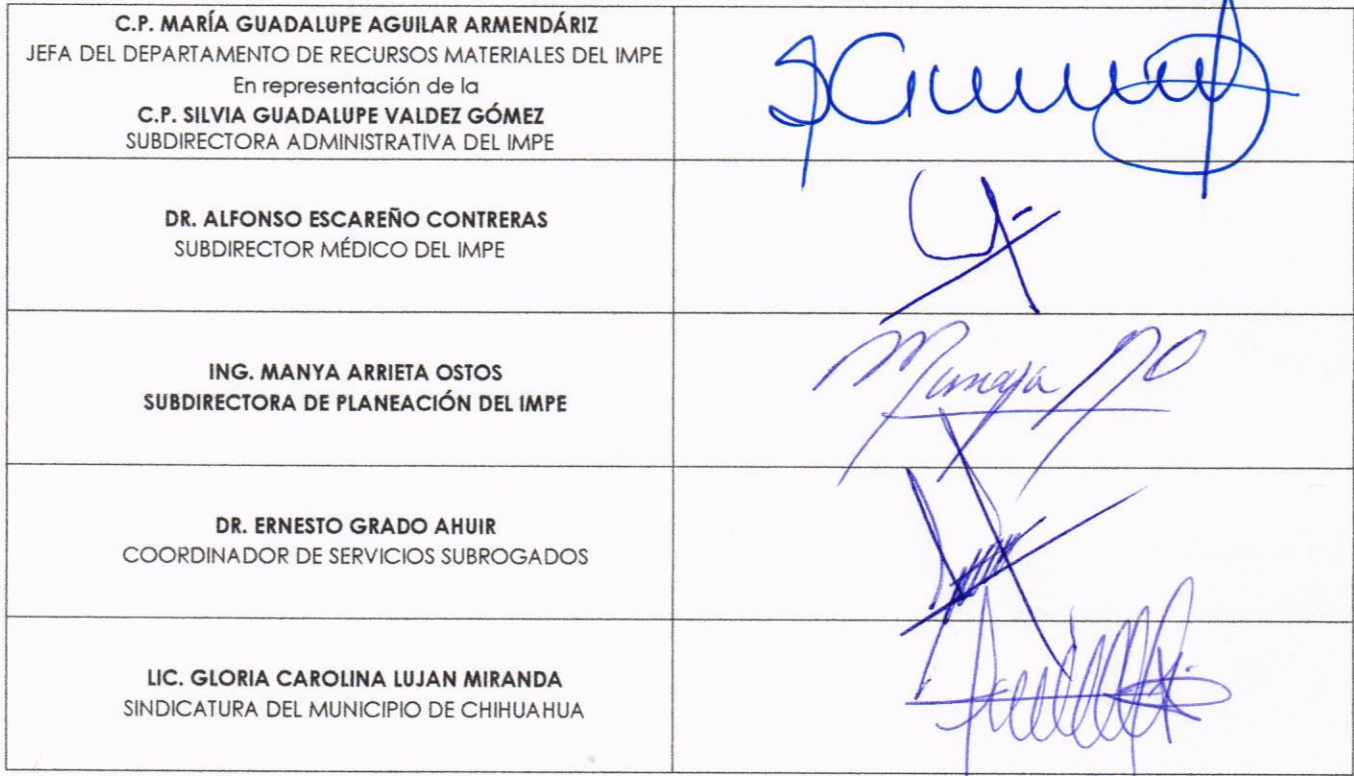 C.P. MARÍA GUADALUPE AGUILAR ARMENDÁRIZ
JEFA DEL DEPARTAMENTO DE RECURSOS MATERIALES DEL IMPE
En representación de la
C.P. SILVIA GUADALUPE VALDEZ GÓMEZ
SUBDIRECTORA ADMINISTRATIVA DEL IMPE
DR. ALFONSO ESCAREÑO CONTRERAS
SUBDIRECTOR MÉDICO DEL IMPE
ING. MANYA ARRIETA OSTOS
SUBDIRECTORA DE PLANEACIÓN DEL IMPE
DR. ERNESTO GRADO AHUIR
COORDINADOR DE SERVICIOS SUBROGADOS
LIC. GLORIA CAROLINA LUJAN MIRANDA
SINDICATURA DEL MUNICIPIO DE CHIHUAHUA